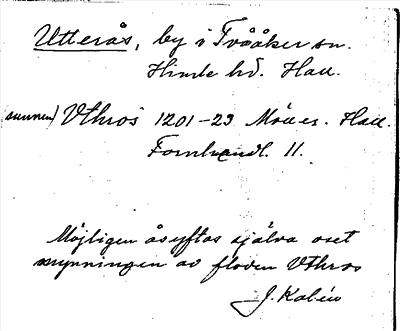 Utterås, by i Tvååker sn.
Himle hd. Hall.
sunnen) Vthros 1201-23 Möller. Hall.
Fornhandl. 11.
Möjligen åsyftas själva oset
mynningen av floden Vthros
J. Kalén